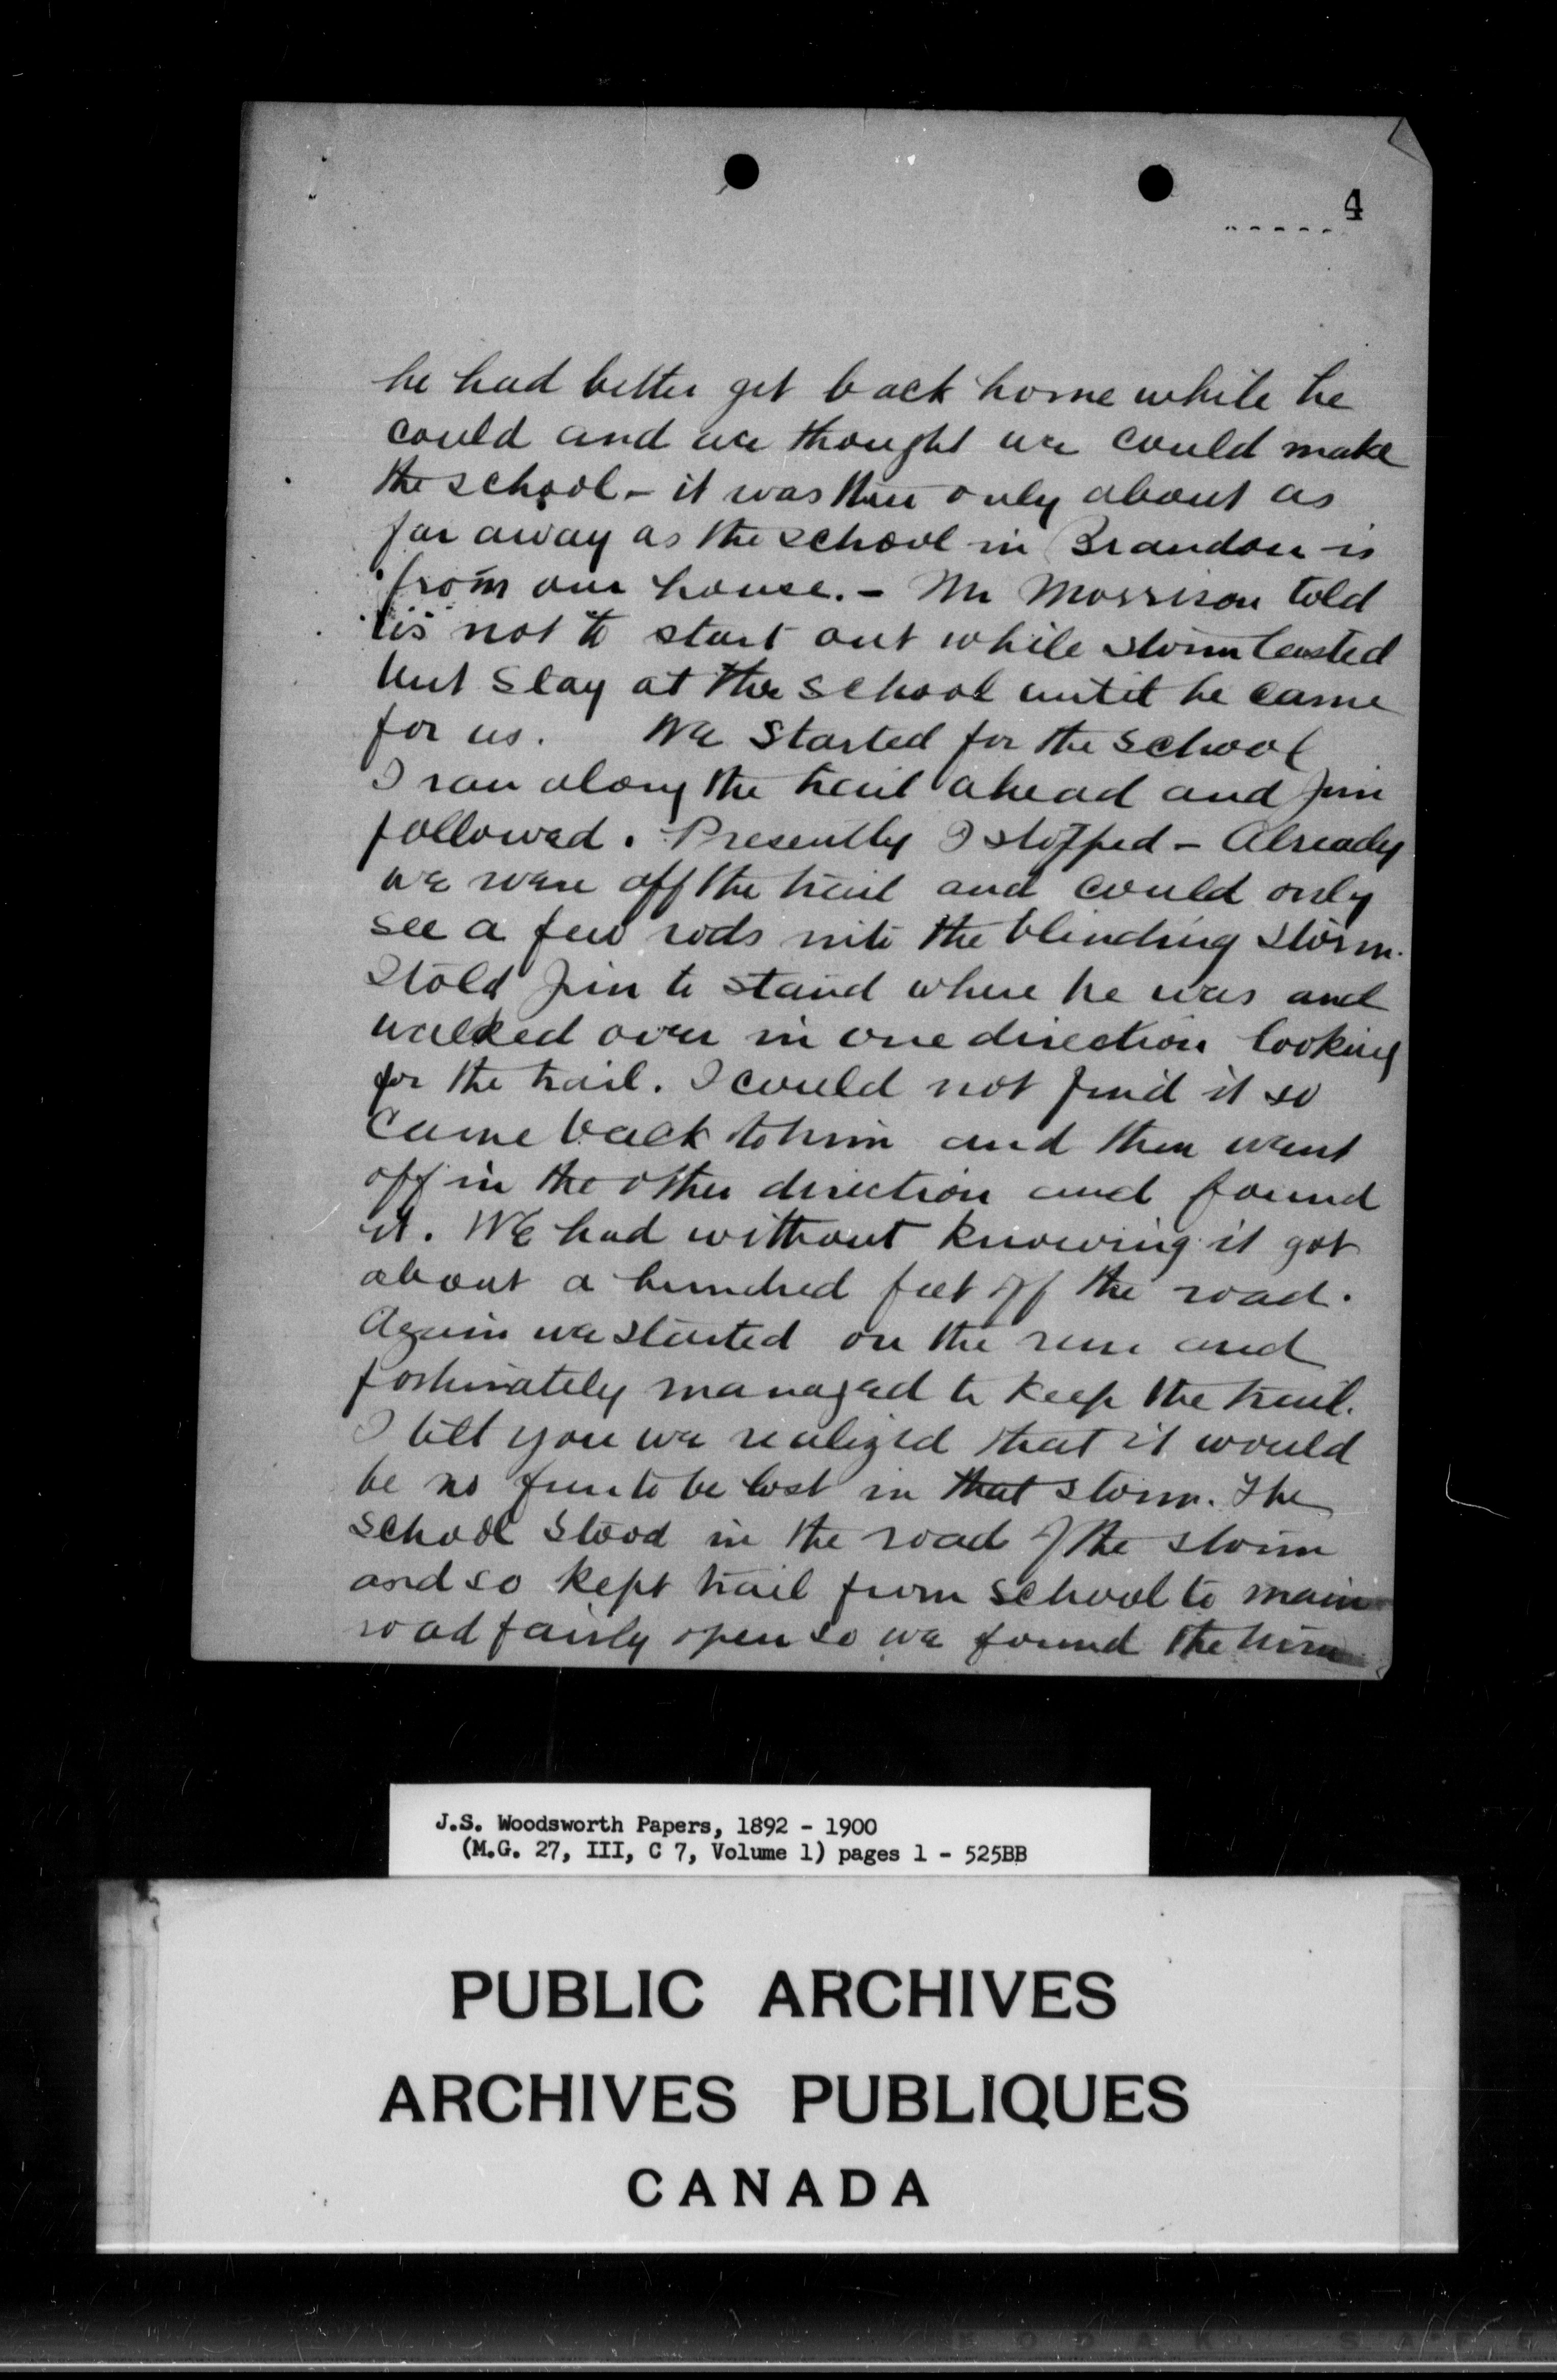 4
he had better get back home while he
could and we thought we could make
the school – it was then only about as
far away as the school in Brandon is
from our house. – Mr Morrison told
us not to start out while storm lasted
but stay at the school until he came
for us. We started for the school
I ran along the trail ahead and Jim
followed. Presently I stopped – Already
we were off the trail and could only
see a few rods into the blinding storm.
I told Jim to stand where he was and
walked over in one direction looking
for the trail. I could not find it so
came back to him and then went
off in the other direction and found
it. We had without knowing it got
about a hundred feet off the road.
Again we started on the run and
fortunately managed to keep the trail.
I tell you we realized that it would
be no fun to be lost in that storm. The
school stood in the road of the storm
and so kept trail from school to main
road fairly open so we found the turn
J.S. Woodsworth Papers, 1892 - 1900
(M.G. 27, III, C 7, Volume 1) pages 1 - 525BB
PUBLIC ARCHIVES
ARCHIVES PUBLIQUES
CANADA
KODAK SAFE